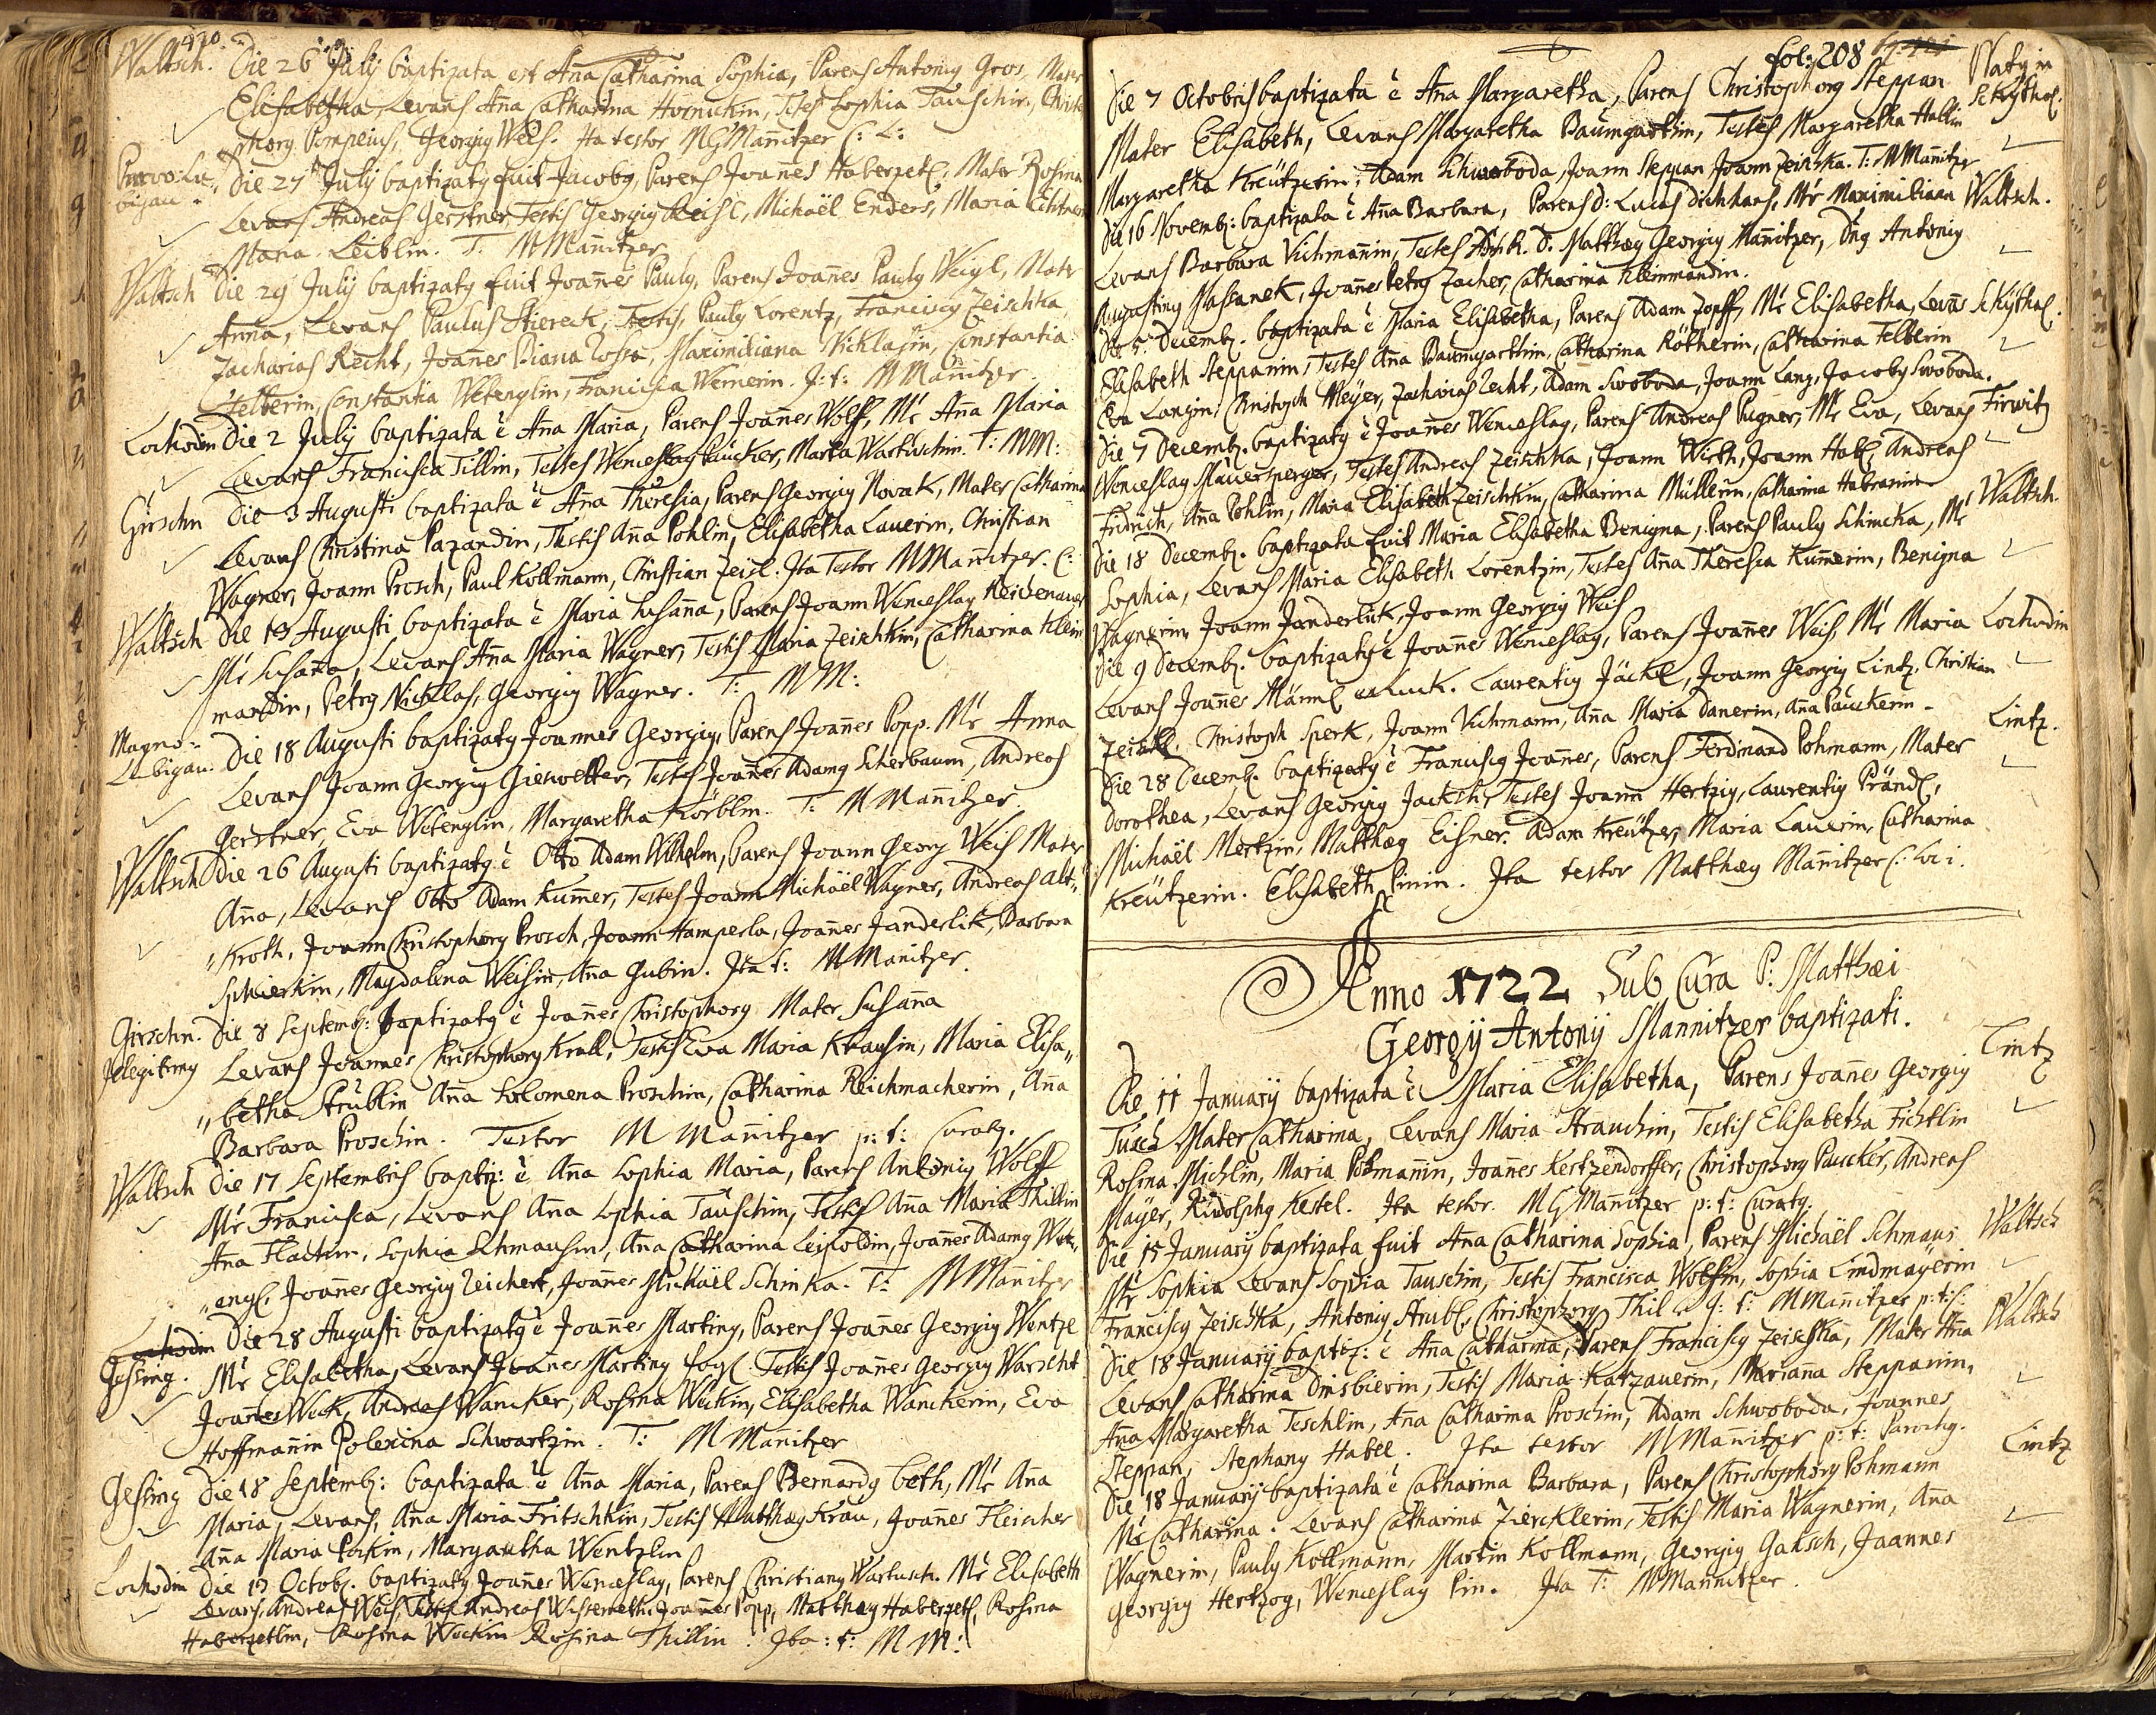 420.
Waltsch. Die 26 July baptizata est Aña Catharina Sophia, Parens Antonig Gros, Mater
Elisabetha, Levans Aña Catharina Hornichin, Testes Sophia Tauschin, Christo
phorg Pompeius, Georgig Weis. Ita testor MGMañitzer C: L:
Die 27 July baptizatg fuit Jacobg, Parens Joañes Haberzetl: Mater Rosina
Levans Andreas Gerstner, Testis Georgig Reisl, Michaël Enders, Maria
Maria Leiblin. T: MMañitzer
Waltsch Die 29 July baptizatg fuit Joañes Paulg, Parens Joañes Paulg Weigl, Mater
Anna, Levans Paulus Stiereck, Testis, Paulg Lorentz, Franciscg Zeischka,
Zacharias Recht, Joañes Diana Rossa, Maximiliana Nicklasin, Constantia
Felberin, Constantia Wetenglin, Francisca Wernerin. J: t: MMañitzer.
Lochodin Die 2 July baptizata ē Aña Maria, Parens Joañes Wolff, Mr Aña Maria
Levans Francisca Tillin, Testes Wenceslag Paucker, Maria Wartuschin. T: MM:
Girschn Die 3 Augusti baptizata ē Aña Theresia, Parens Georgig Novak, Mater Catharina
Levans Christina Pazandin, Testis Aña Pohlin, Elisabetha Lauerin, Christian
Wagner, Joann Prosch, Paul Kollmann, Christian Zeisl. Ita Testor MMañitzer. C:
Waltsch Die 13 Augusti baptizata ē Maria Susaña, Parens Joann Wenceslag Reichenauer
Mr Susaña, Levans Aña Maria Wagner, Testis Maria Zeischkin, Catharina Klein
mandin, Petrg Nicklas, Georgig Wagner. T: MM:
Magno-
Lubigau. Die 18 Augusti baptizatg Joannes Georgig, Parens Joañes Popp. Mr Anna
Levans Joann Georgig Gieswetter, Testes Joañes Adamg Scherbaum, Andreas
Gerstner, Eva Wetenglin, Margaretha Körblin. T: MMañitzer.
Waltsch Die 26 Augusti baptizatg ē Otto Adam Wilhelm, Parens Joann Georg Weis Mater
Aña, Levans Otto Adam Kuñer, Testes Joann Michaël Wagner, Andreas Alt„
„Kroth, Joann Christophorg Prosch, Joann Hamperla, Joañes Janderlik, Barbara
Spierkin, Magdalena Weisin, Aña Gubin. Ita t: MMañitzer.
Girschn. Die 8 Septemb: baptizatg ē Joañes Christophorg Mater Susaña
Illegitimg Levans Joannes Christophorg Krall, Testis Eva Maria Krausin, Maria Elisa„
„betha Strüblin Aña Solomena Proschin, Catharina Reichmacherin, Aña
Barbara Proschin. Testor MMañitzer p: t: Curatg.
Waltsch Die 17 Septembris baptiz: ē Aña Sophia Maria, Parens Antonig Wolff
Mr Francisca, Levans Aña Sophia Tauschin, Testis Aña Maria Thillin
Aña Flachin, Sophia Schmausin, Aña Catharina Leipoldin, Joañes Adamg Wet„
„engl, Joañes Georgig Zeichert, Joañes Michaël Schinka. T: MMañitzer
Lochodin Die 28 Augusti baptizatg ē Joañes Marting, Parens Joañes Georgig Wentzl
Gessing. Mr Elisabetha, Levans Joañes Marting Fogl. Testis Joañes Georgig Warscht
Joañes Weck, Andreas Wancker, Rosina Weckin, Elisabetha Wanckerin, Eva
Hoffmañin Polexina Schwartzin. T: MMañitzer
Gessing Die 18 Septemb: baptizata ē Aña Maria, Parens Bernardg Beth, Mr Aña
Maria, Levans, Aña Maria Fritschkin, Testis Matthæg Krau, Joañes Fleischer
Aña Maria Pockin, Margaretha Wentzlin
Lochodin Die 13 Octob. baptizatg Joañes Wenceslag, Parens Christiang Wartusch. Mr Elisabeth
Levans Andreas Weis, Testis Andreas Joañes Popp, Matthæg Haberzetl, Rosina
Haberzetlin, Rosina Weckin Rosina Thillin. Ita: t: MM:
fol: 208
Die 7 Octobris baptizata ē Aña Margaretha, Parens Christophorg Steppan
Mater Elisabeth, Levans Margaretha Baumgartin, Testes Margaretha Hablin
Margaretha Kreützerin, Adam Schwoboda, Joann Steppan Joann Zeischka. T: MMañitzer
Die 16 Novemb: baptizata ē Aña Barbara, Parens d: Lucas Dichhans, Mr Maximiliana Waltsch.
Levans Barbara Vichmañin, Testes d. Matthæg Georgig Mañitzer, Dñg Antonig
Augusting Massanek, Joañes Petrg Zacher, Catharina Kleinmandin.
Die 5 Decemb. baptizata ē Maria Elisabetha, Parens Adam Zopff, Mr Elisabetha, Levās Schÿthal.
Elisabeth Steppanin, Testes Aña Baumgarthin, Catharina Rötherin, Catharina Felberin
Eva Langin, Christoph Meÿer, Zacharias Recht, Adam Swoboda, Joann Lang, Jacobg Swoboda.
Die 7 Decemb. baptizatg ē Joañes Wenceslag, Parens Andreas Pugner, Mr Eva, Levans Firwitz
Wenceslag Mauersperger, Testes Andreas Zeischka, Joann Wirth, Joann Habl, Andreas
Fridrich, Aña Pohlin, Maria Elisabeth Zeischkin, Catharina Müllerin, Catharina Habranin
Die 18 Decemb. baptizata fuit Maria Elisabetha Benigna, Parens Paulg Schincka, Mr Waltsch.
Sophia, Levans Maria Elisabeth Lorentzin, Testes Aña Theresia Kuñerin, Benigna
Wagnerin, Joann Janderlik, Joann Georgig Weis
Die 9 Decemb. baptizatg ē Joañes Wenceslag, Parens Joañes Weis, Mr Maria Lochodin
Levans Joañes Männl Laurentig Jäckl, Joann Georgig Lintz. Christian
Zeischl. Christoph Sperk, Joann Vichmann, Aña Maria Danerin, Aña Pauckerin.
Die 28 Decemb. baptizatg ē Franciscg Joañes, Parens Ferdinand Pohmann, Mater Lintz.
Dorothea, Levans Georgig Jacksch, Testes Joann Hertzig, Laurentig Prändl,
Michaël Mertzin, Matthæg Eisner. Adam Kreützer, Maria Lauerin, Catharina
Kreützerin. Elisabeth Pinin. Ita testor Matthæg Mañitzer C: Loci.
Anno 1722 Sub Cura P: Matthæi
Georgÿ Antonÿ Mannitzer baptizati.
Die 11 Januarÿ baptizata ē Maria Elisabetha, Parens Joañes Georgig Lintz
Tusch Mater Catharina, Levans Maria Strauchin, Testis Elisabetha Fichtlin
Rosina Michlin, Maria Pohmañin, Joañes Kertzendorffer, Christophorg Paucker, Andreas
Mayer, Rudolphg Kestel. Ita testor. MGMañitzer p: t: Curatg.
Die 15 Januarÿ baptizata fuit Aña Catharina Sophia, Parens Michaël Schmaus Waltsch
Mr Sophia Levans Sophia Tauschin, Testis Francisca Wolffin, Sophia Lindmaÿerin
Franciscg Zeischka, Antonig Strubl, Christophorg Thil J: t: MMañitzer p: t:
Die 18 Januarÿ baptiz: ē Aña Catharina, Parens Franciscg Zeischka, Mater Aña Waltsch
Levans Catharina Dinsbierin, Testis Maria Katzauerin, Mariana Steppanin,
Aña Margaretha Teschlin, Aña Catharina Proschin, Adam Schwoboda, Joannes
Steppan, Stephang Habel. Ita testor MMañitzer p: t: Parochg.
Die 18 Januarÿ baptizata ē Catharina Barbara, Parens Christophorg Pohmann Lintz
Mr Catharina. Levans Catharina Ziercklerin, Testis Maria Wagnerin, Aña
Wagnerin, Paulg Kollmann, Martin Kollmann, Georgig Gaksch, Joannes
Georgig Hertzog, Wenceslag Pin. Ita T: MMannitzer.